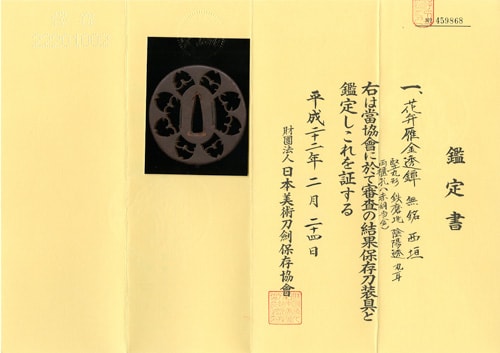 № 459868
鑑定書
一、花弁雁金透鐔 無銘 西垣
竪丸形 鉄磨地 陰陽透 丸耳
両櫃孔(赤銅
右は當協會に於て審査の結果保存刀装具と
鑑定しこれを証する
平成二十二年二月二十四日
財團法人 日本美術刀劍保存協會